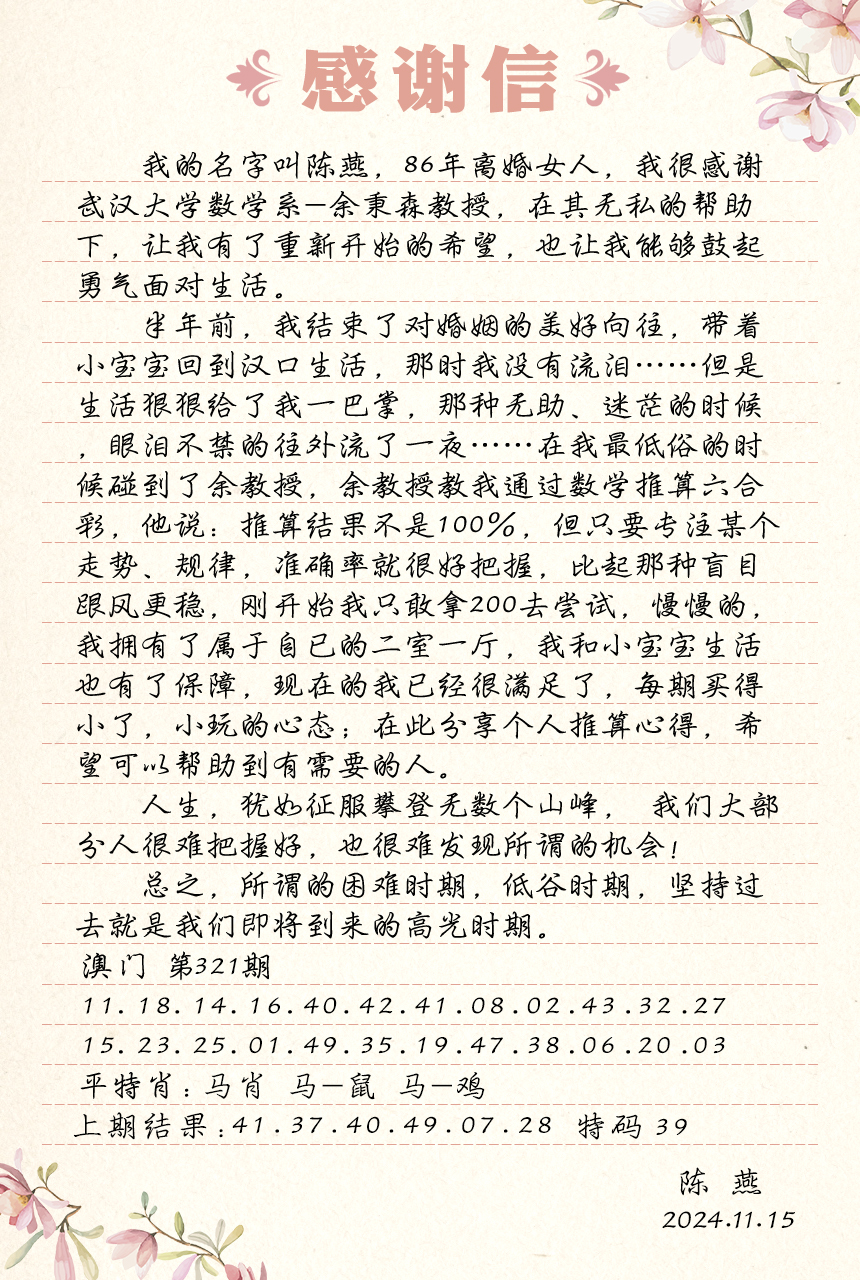 感谢信
我的名字叫陈燕，86年离婚女人，我很感谢
武汉大学数学系—余秉森教授，在其无私的帮助
下，让我有了重新开始的希望，也让我能够鼓起
勇气面对生活。
半年前，我结束了对婚姻的美好向往，带着
小宝宝回到汉口生活，那时我没有流泪……但是
生活狠狠给了我一巴掌，那种无助、迷茫的时候
，眼泪不禁的往外流了一夜……在我最低俗的时
候碰到了余教授，余教授教我通过数学推算六合
彩，他说：推算结果不是100%，但只要专注某个
走势、规律，准确率就很好把握，比起那种盲目
跟风更稳，刚开始我只敢拿200去尝试，慢慢的，
我拥有了属于自已的二室一厅，我和小宝宝生活
也有了保障，现在的我已经很满足了，每期买得
小了，小玩的心态；在此分享个人推算心得，希
望可以帮助到有需要的人。
人生，犹如征服攀登无数个山峰， 我们大部
分人很难把握好，也很难发现所谓的机会！
总之，所谓的困难时期，低谷时期，坚持过
去就是我们即将到来的高光时期。
澳门 第321期
11.18.14.16.40.42.41.08.02.43.32.27
15.23.25.01.49.35.19.47.38.06.20.03
平特肖：马肖 马—鼠 马—鸡
上期结果：41.37.40.49.07.28 特码 39
陈 燕
2024.11.15